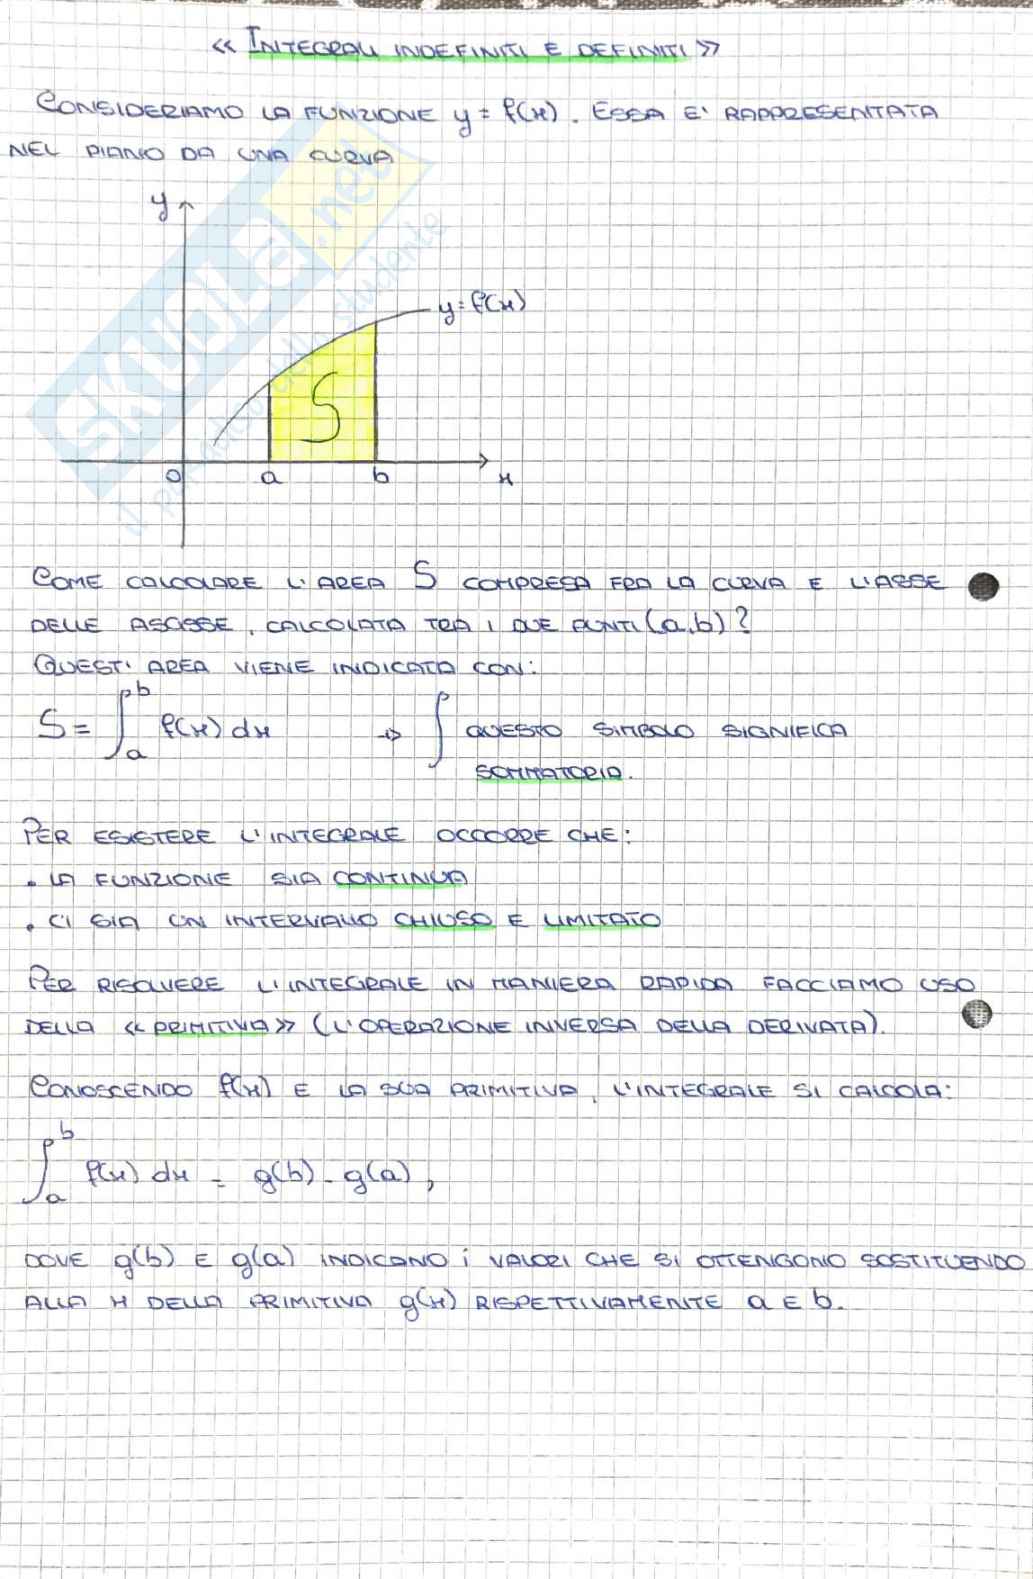 « INTEGRALI INDEFINITI E DEFINITI »
CONSIDERIAMO LA FUNZIONE y = f(x). ESSA E' RAPPRESENTATA
NEL PIANO DA UNA CURVA
y
y=f(x)
S
0 a b x
COME CALCOLARE L'AREA S COMPRESA FRA LA CURVA E L'ASSE
DELLE ASCISSE, CALCOLATA TRA I DUE PUNTI (a,b)?
QUEST'AREA VIENE INDICATA CON:
S = ∫_a^b f(x) dx → ∫ QUESTO SIMBOLO SIGNIFICA
SOMMATORIA.
PER ESISTERE L'INTEGRALE OCCORRE CHE:
• LA FUNZIONE SIA CONTINUA
• CI SIA UN INTERVALLO CHIUSO E LIMITATO
PER RISOLVERE L'INTEGRALE IN MANIERA RAPIDA FACCIAMO USO
DELLA « PRIMITIVA » (L'OPERAZIONE INVERSA DELLA DERIVATA).
CONOSCENDO f(x) E LA SUA PRIMITIVA, L'INTEGRALE SI CALCOLA:
∫_a^b f(x) dx = g(b) - g(a),
DOVE g(b) E g(a) INDICANO i VALORI CHE SI OTTENGONO SOSTITUENDO
ALLA x DELLA PRIMITIVA g(x) RISPETTIVAMENTE a E b.
SKUOLA.net